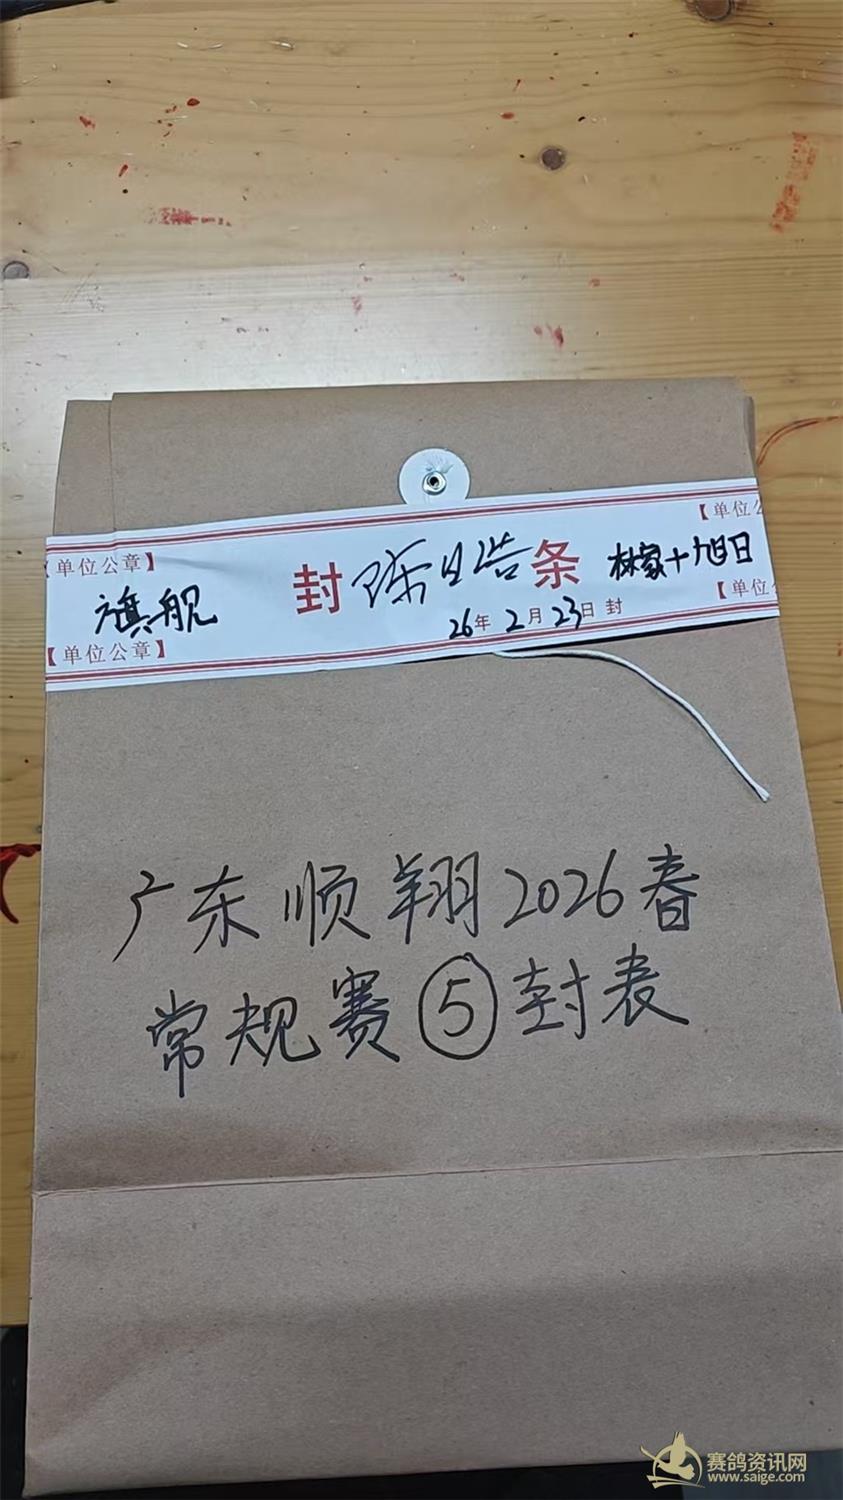 【单位公章】
【单位公
旗舰
封 陈日浩 条
林家+旭日
26年2月23日封
【单位公章】
【单位公
广东顺翔2026春
常规赛⑤封表
赛鸽资讯网
www.saige.com